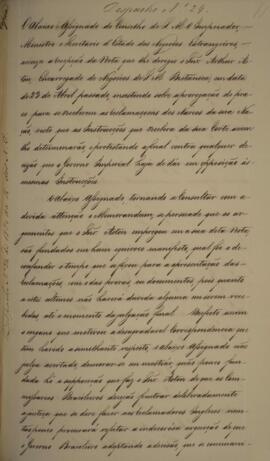 Despacho Nº 29.
O Abaixo Assignado do Conselho de S. M. o Imperador,
Ministro e Secretario d'Estado dos Negocios Estrangeiros,
accusa a recepção da Nota que lhe dirigio o Snr. Arthur As-
ton Encarregado de Negocios de S. M. Britanica, em data
de 23 de Abril passado, insistindo sobre a prorogação de pra-
zo para se receberem as reclamações dos Navios da sua Na-
ção, visto que as Instrucções que recebera da sua Corte assim
lho determinarão e protestando afinal contra qualquer de-
cisão que o Governo Imperial haja de dar em opposição ás
mesmas Instrucções.
O Abaixo Assignado, tornando a Consultar com a
devida attenção o Memorandum, se persuade que os ar-
gumentos que o Snr. Aston empregou em a sua dita Nota,
são fundados em hum equivoco manifesto, qual foi o de
confundir o tempo que se fixou para a apresentação das
reclamações, com o das provas, ou documentos, pois quanto
a estes ultimos não haverá duvida alguma em serem rece-
bidos até o momento da
final. Desfeito assim
o engano que motivou a desagradavel Correspondencia que
tem havido a semelhante respeito, o Abaixo Assignado não
julga acertado demorar-se em mostrar, quão pouco fun-
dada he a supposição que faz o Snr. Aston de que os Com-
missarios Brasileiros desejão frustrar deliberadamente
a justiça que se deve fazer aos reclamadores Inglezes
o Governo Brasileiro adoptando a decisão, que se communi-